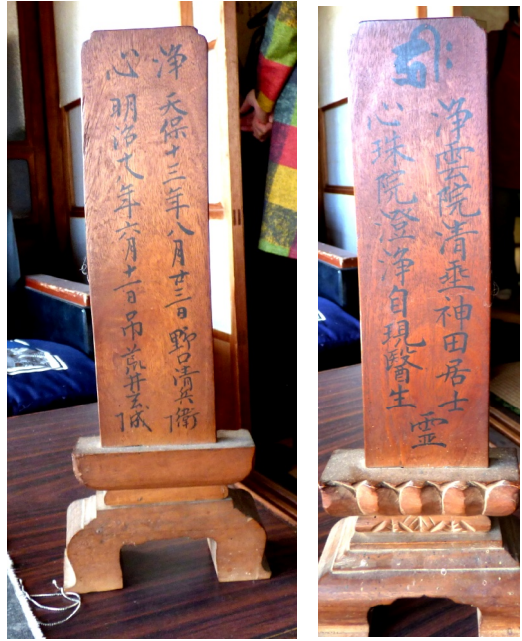 浄 天保十三年八月廿三日 野口清兵衛
心 明治九年六月十一日 吊 荒井玄誠
浄雲院清垂神田居士
心珠院澄浄自現醫生
霊